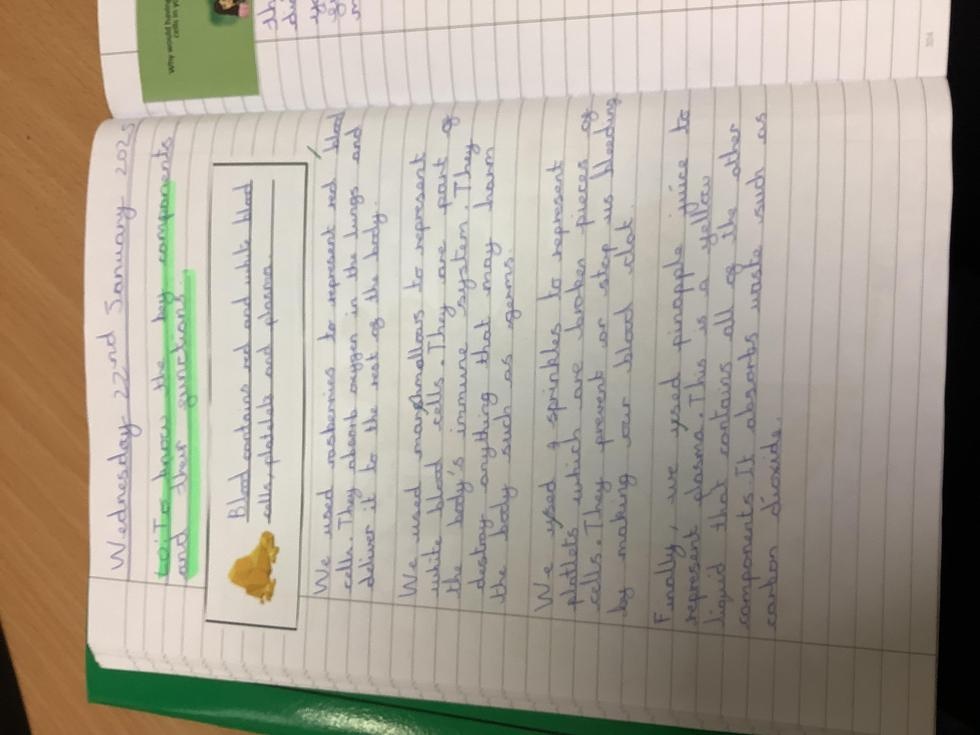 Why would having
cells in yo
Wednesday 22nd January 2025
LO: To know the key components
and their functions.
Blood contains red and white blood
cells, platelets and plasma.
We used rasberries to represent red blood
cells. They absorb oxygen in the lungs and
deliver it to the rest of the body.
We used marshmallows to represent
white blood cells. They are part of
the body's immune system. They
destroy anything that may harm
the body such as germs.
We used sprinkles to represent
platlets which are broken pieces of
cells. They prevent or stop us bleeding
by making our blood clot.
Finally, we used pinapple juice to
represent plasma. This is a yellow
liquid that contains all of the other
components. It absorbs waste such as
carbon dioxide.